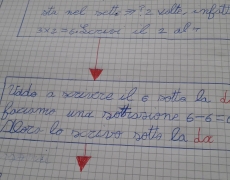 sta nel sette 2 volte, infatti
3x2=6 Scrivi il 2 al
Vado a scrivere il 6 sotto la da
facciamo una sottrazione 6-6=0
Allora lo scrivo sotto la da